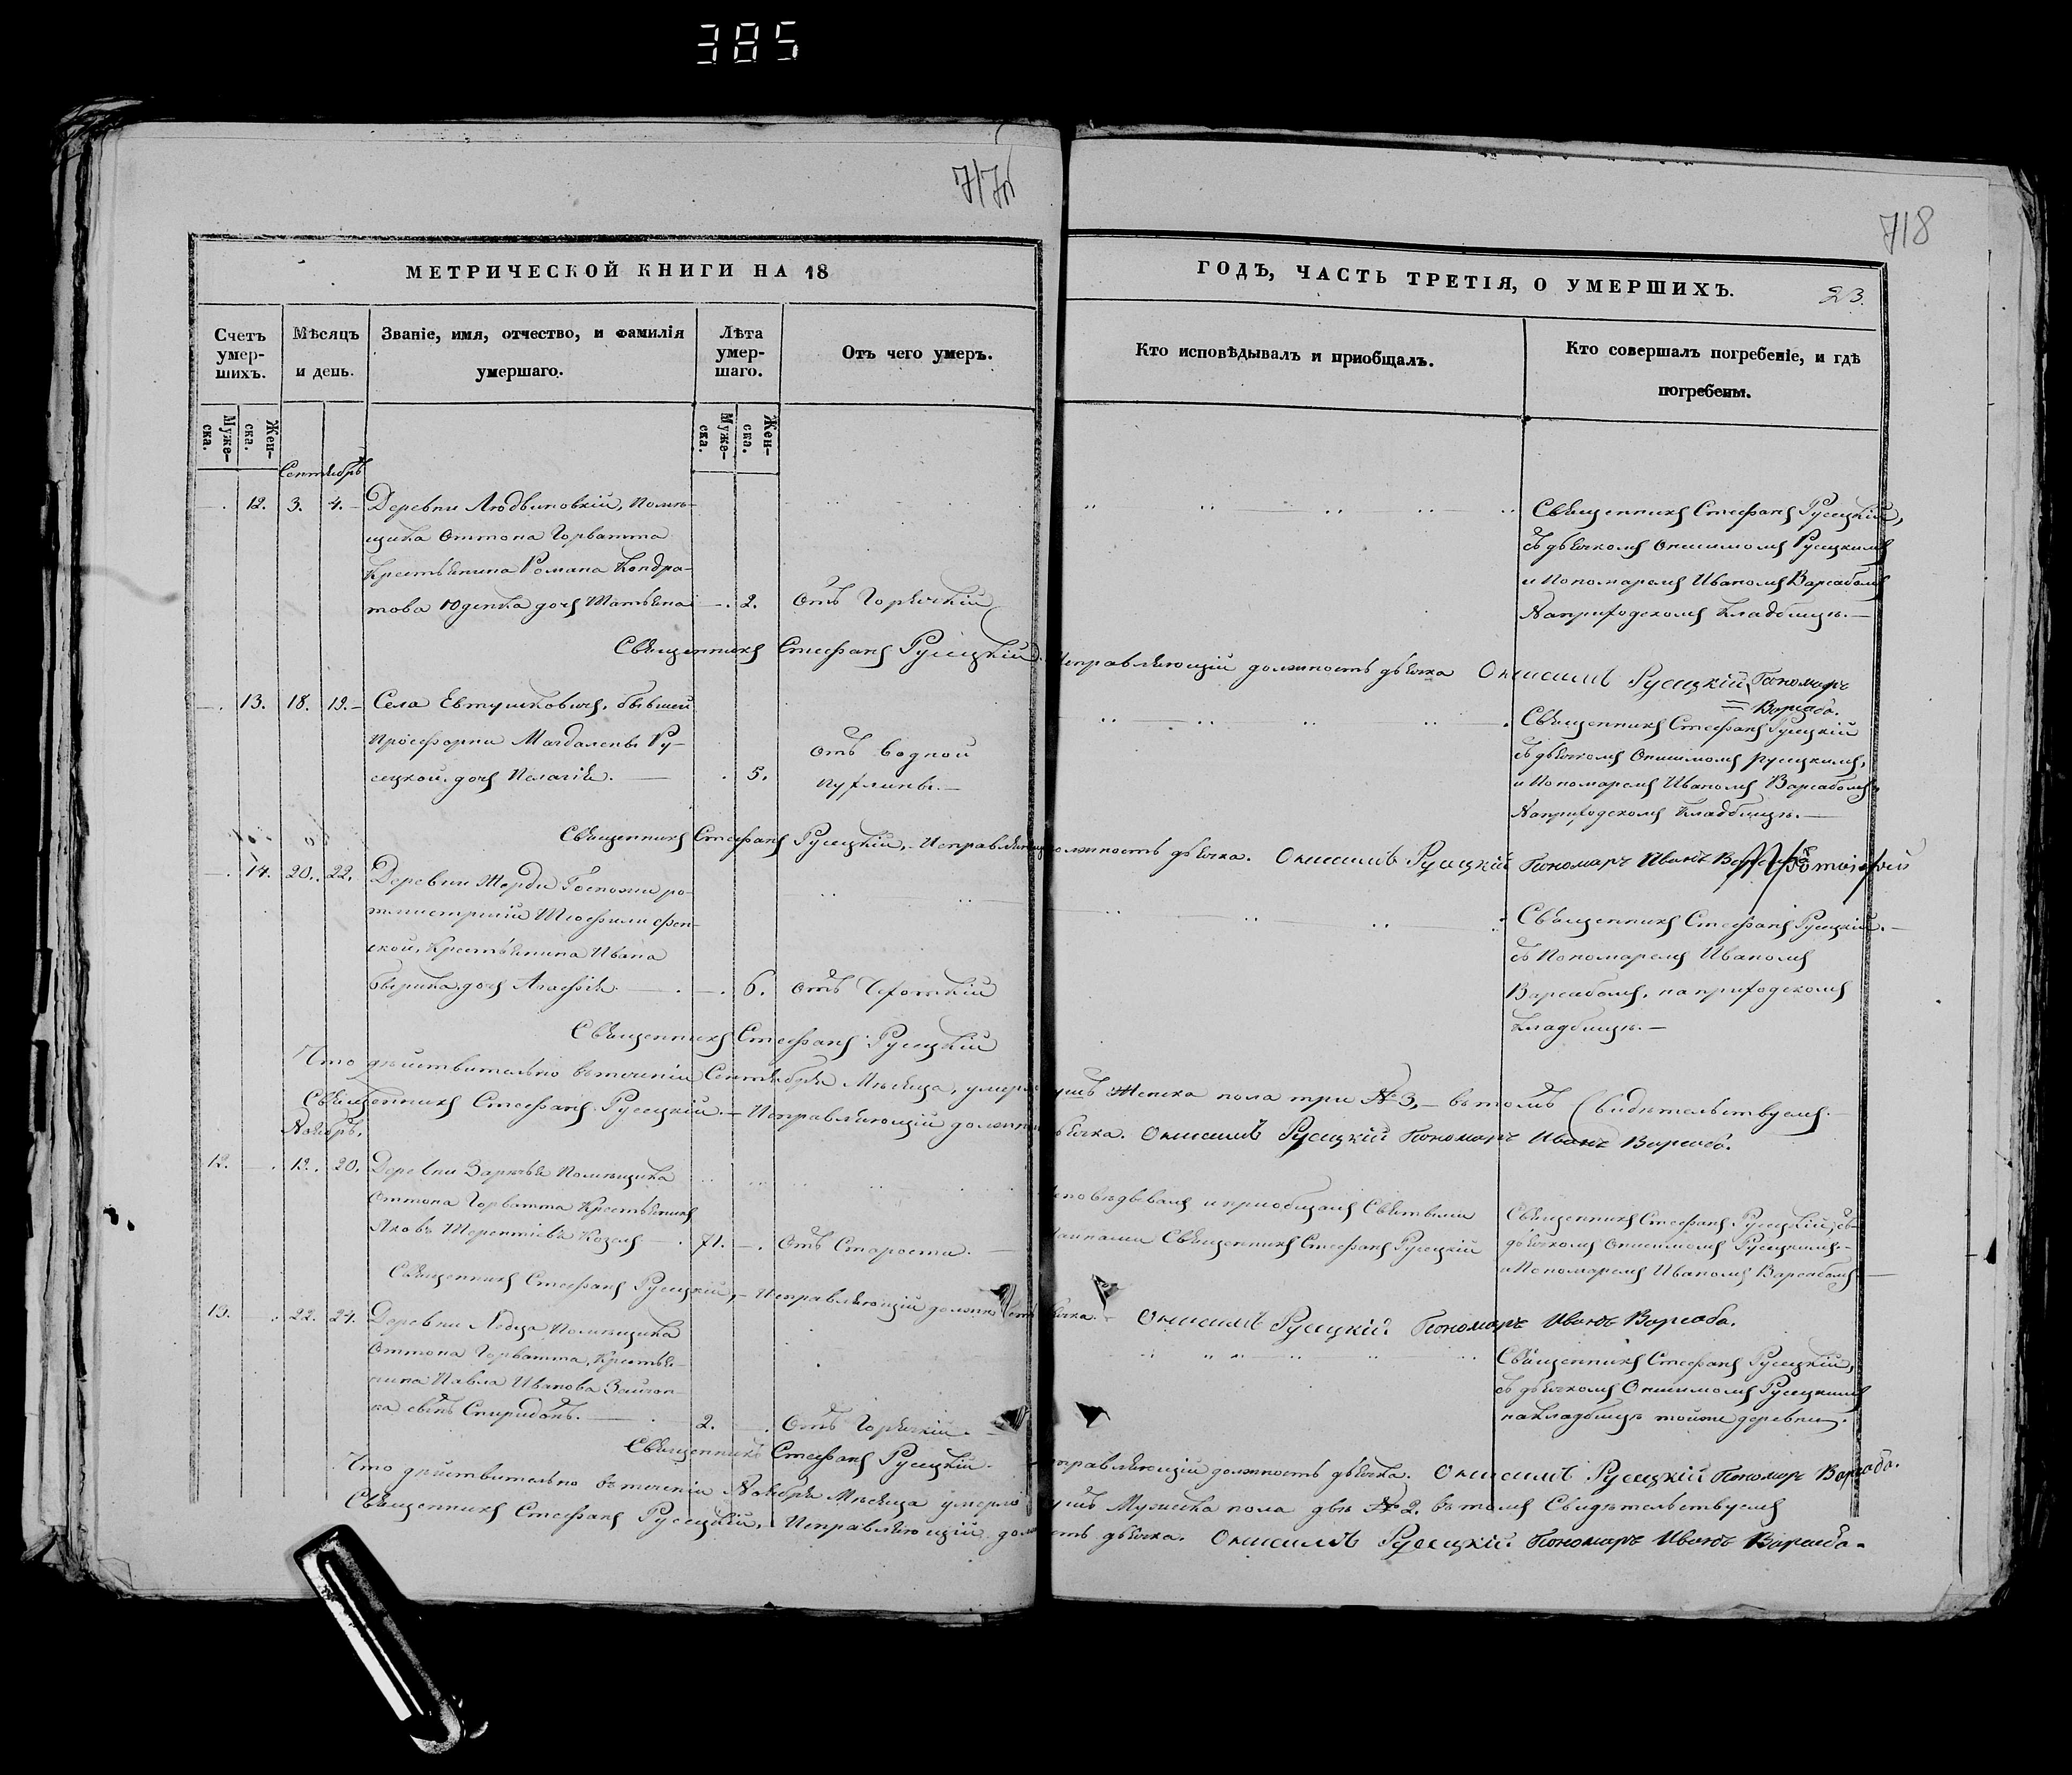 385
717об
718
МЕТРИЧЕСКОЙ КНИГИ НА 18
ГОДЪ, ЧАСТЬ ТРЕТІЯ, О УМЕРШИХЪ.
23.
Счетъ умер-шихъ.
Мѣсяцъ и день.
Званіе, имя, отчество, и фамилія умершаго.
Лѣта умер-шаго.
Отъ чего умеръ.
Кто исповѣдывалъ и приобщалъ.
Кто совершалъ погребеніе, и гдѣ погребены.
Муже-ска.
Жен-ска.
Муже-ска.
Жен-ска.
Сентябрь
12. 3. 4. Деревни Людвиновкій, Помѣ-
щика Оттона Горватта
Крестьянина Романа Кондра-
това Юденка дочь Татьяна 2. Отъ Горячкій
Священникъ Стефанъ Русецкій,
съ дьячкомъ Онисимомъ Русецкимъ
и Пономаремъ Иваномъ Варсабомъ
На приходскомъ кладбищѣ.
Священникъ Стефанъ Русецкій. Исправляющій должность дьячка Онисимъ Русецкій Пономарь
Варсаба.
13. 18. 19. Села Евтушковичъ, бывшей
Просфорни Магдалены Ру-
сецкой, дочь Пелагія. 5. Отъ водной
пухлины.
Священникъ Стефанъ Русецкій
съ дьячкомъ Онисимомъ Русецкимъ,
и Пономаремъ Иваномъ Варсабомъ
На приходскомъ Кладбищѣ.
Священникъ Стефанъ Русецкій, Исправляющій должность дьячка. Онисимъ Русецкій Пономарь Иванъ
14. 20. 22. Деревни Жерди Госпожи ро-
тмистриши Теофили
Крестьянина Ивана
дочь Агафія. 6. Отъ Чехоткій
Священникъ Стефанъ Русецкій.
съ Пономаремъ Иваномъ
Варсабомъ, на приходскомъ
кладбищѣ.
Священникъ Стефанъ Русецкій
Что дѣйствительно въ теченіи Сентября Мѣсяца, умерло душъ Женска пола три № 3, въ томъ Свидѣтельствуемъ.
Священникъ Стефанъ Русецкій. Исправляющій должность дьячка. Онисимъ Русецкій Пономарь Иванъ Варсаба.
Ноябрь.
12. 19. 20. Деревни Зарѣчья Помѣщика
Оттона Горватта Крестьянинъ
Яковъ Терентіевъ Козелъ 71. Отъ Старости.
Исповѣдывалъ и приобщалъ Святыми
Тайнами Священникъ Стефанъ Русецкій
Священникъ Стефанъ Русецкій, съ
дьячкомъ Онисимомъ Русецкимъ
и Пономаремъ Иваномъ Варсабомъ
Священникъ Стефанъ Русецкій, Исправляющій должность дьячка. Онисимъ Русецкій. Пономарь Иванъ Варсаба.
13. 22. 24. Деревни Ледца Помѣщика
Оттона Горватта, Крестья-
нина Павла Иванова
сынъ Спиридонъ. 2. Отъ Горячкій.
Священникъ Стефанъ Русецкій,
съ дьячкомъ Онисимомъ Русецкимъ
на кладбищѣ тойже деревни.
Священникъ Стефанъ Русецкій. Исправляющій должность дьячка. Онисимъ Русецкій Пономарь Варсаба.
Что дѣйствительно въ теченіи Ноября Мѣсяца умерло душъ Мужеска пола двѣ № 2. въ томъ Свидѣтельствуемъ
Священникъ Стефанъ Русецкій, Исправляющій должность дьячка. Онисимъ Русецкій. Пономарь Иванъ Варсаба.